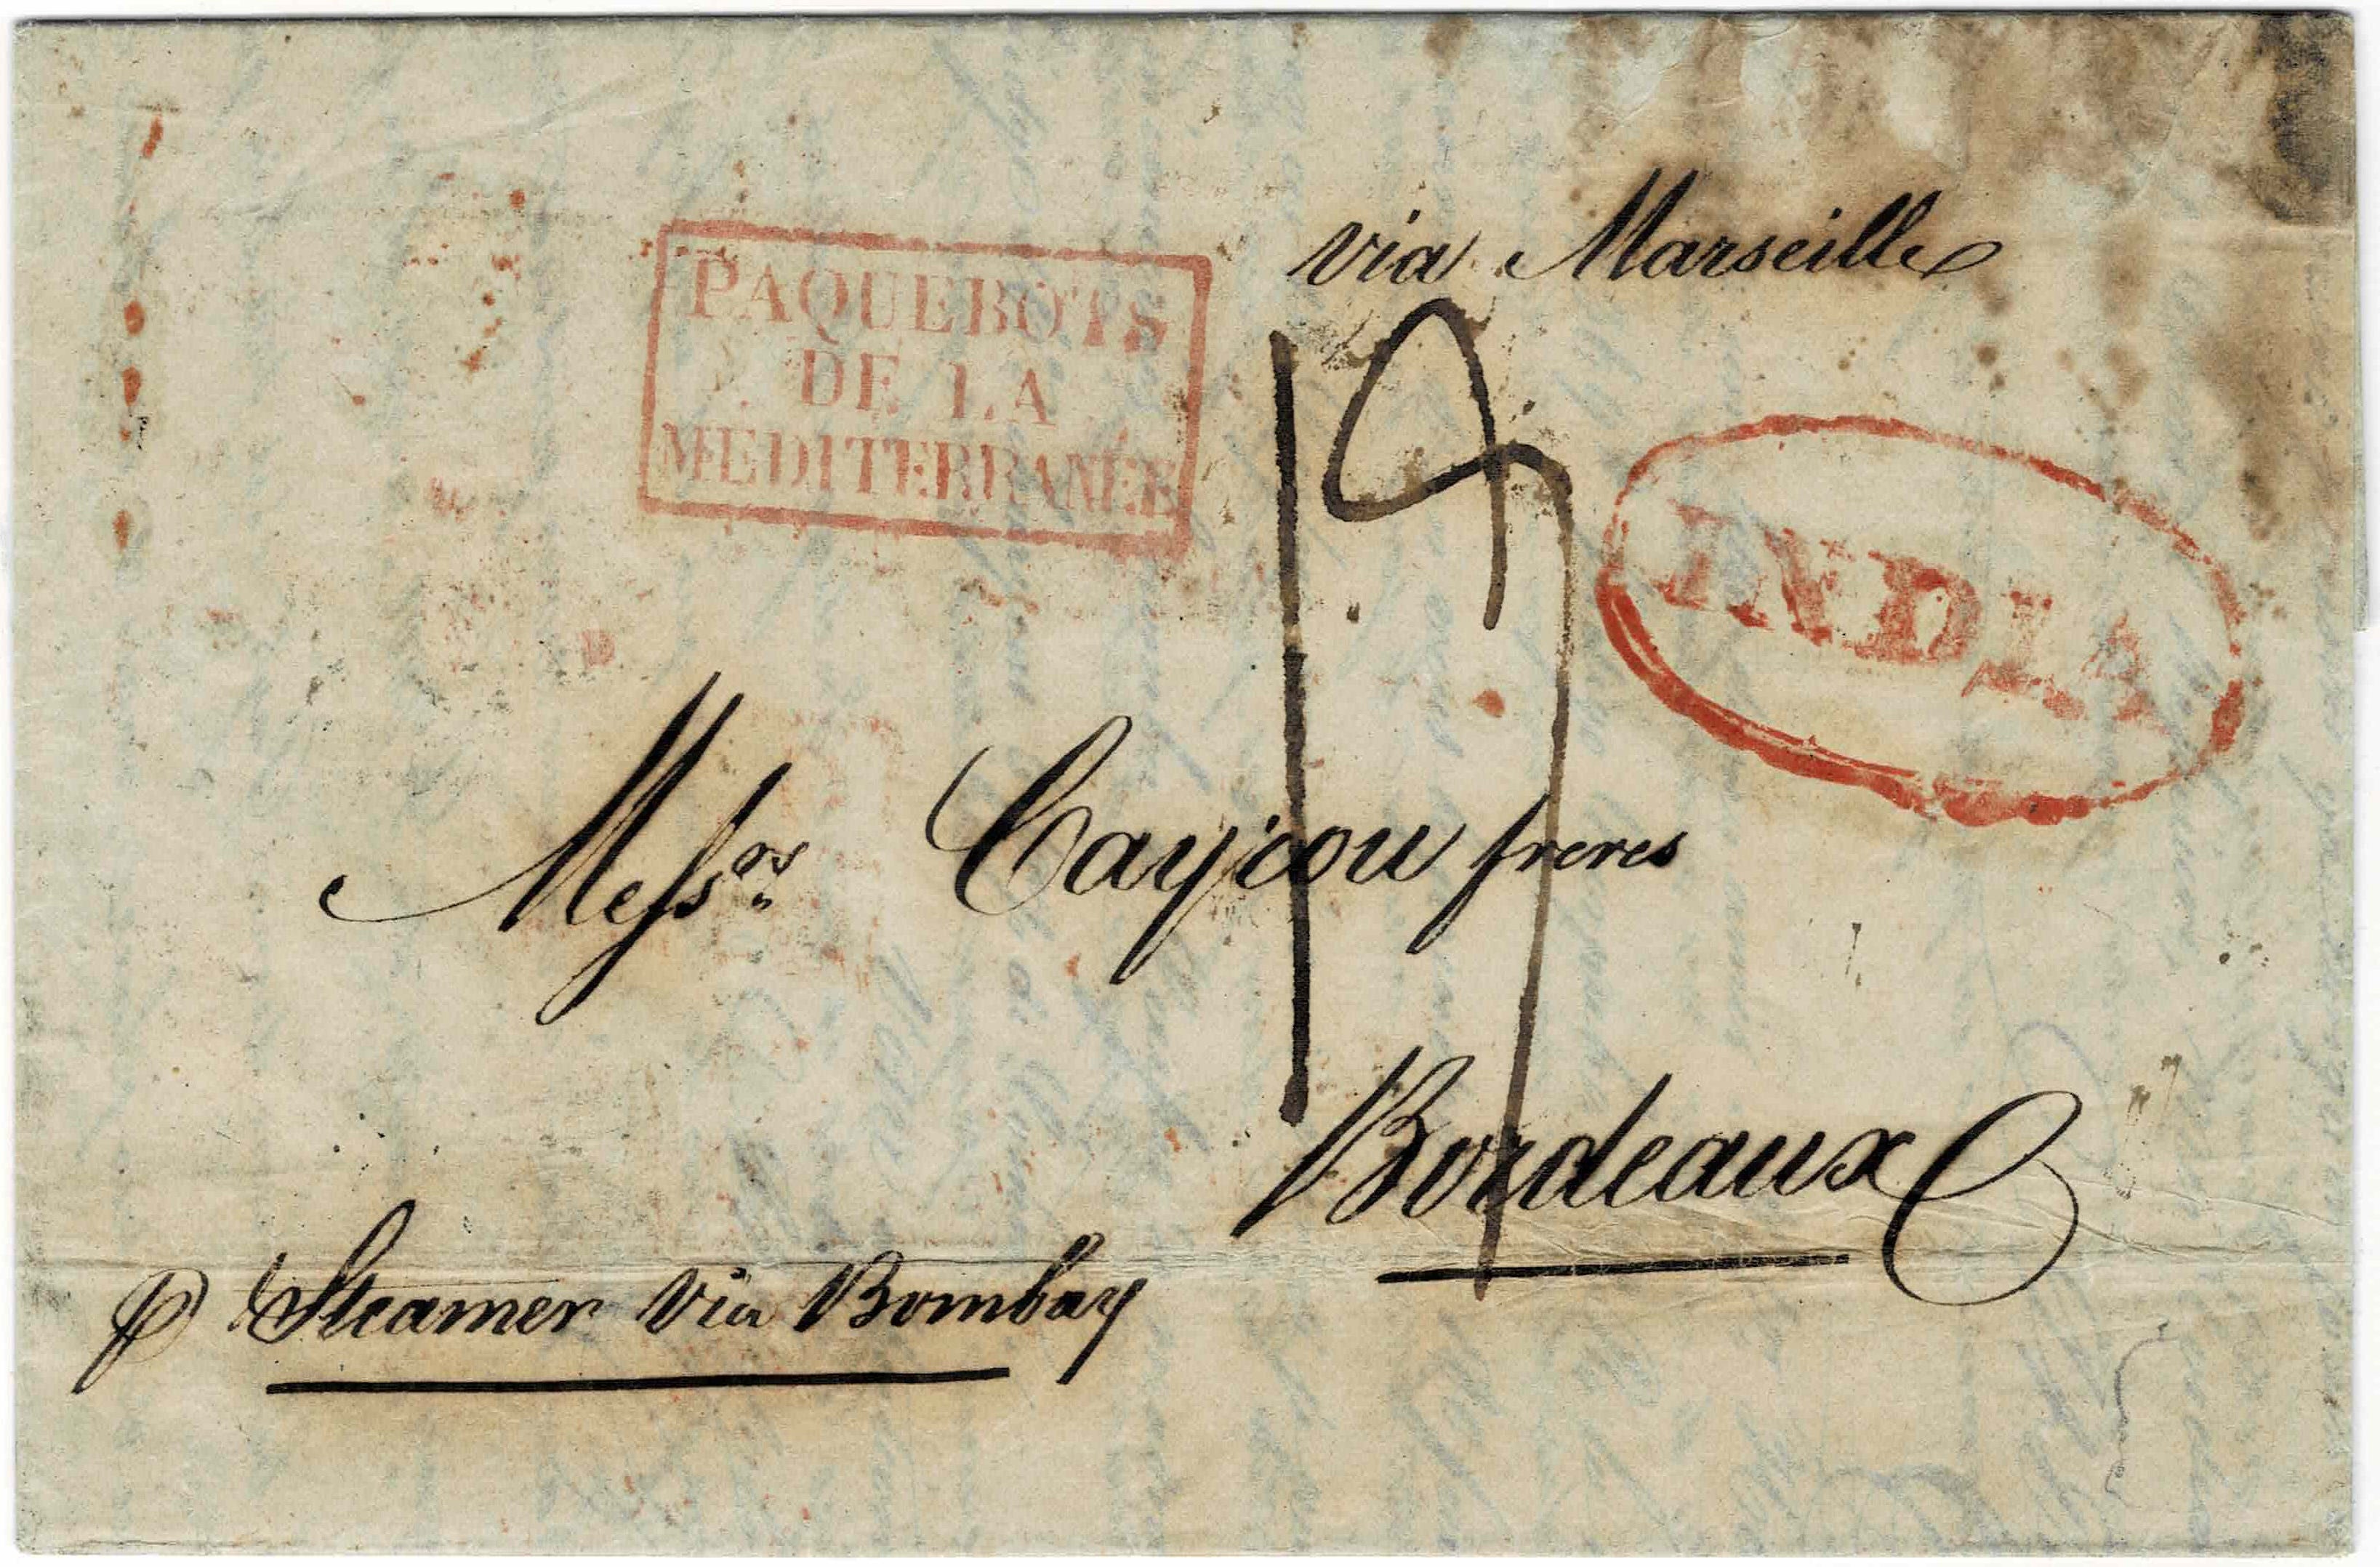 via Marseille
PAQUEBOTS
DE LA
MEDITERRANÉE
19
INDIA
Messrs Cayrou freres
Bordeaux
p Steamer via Bombay